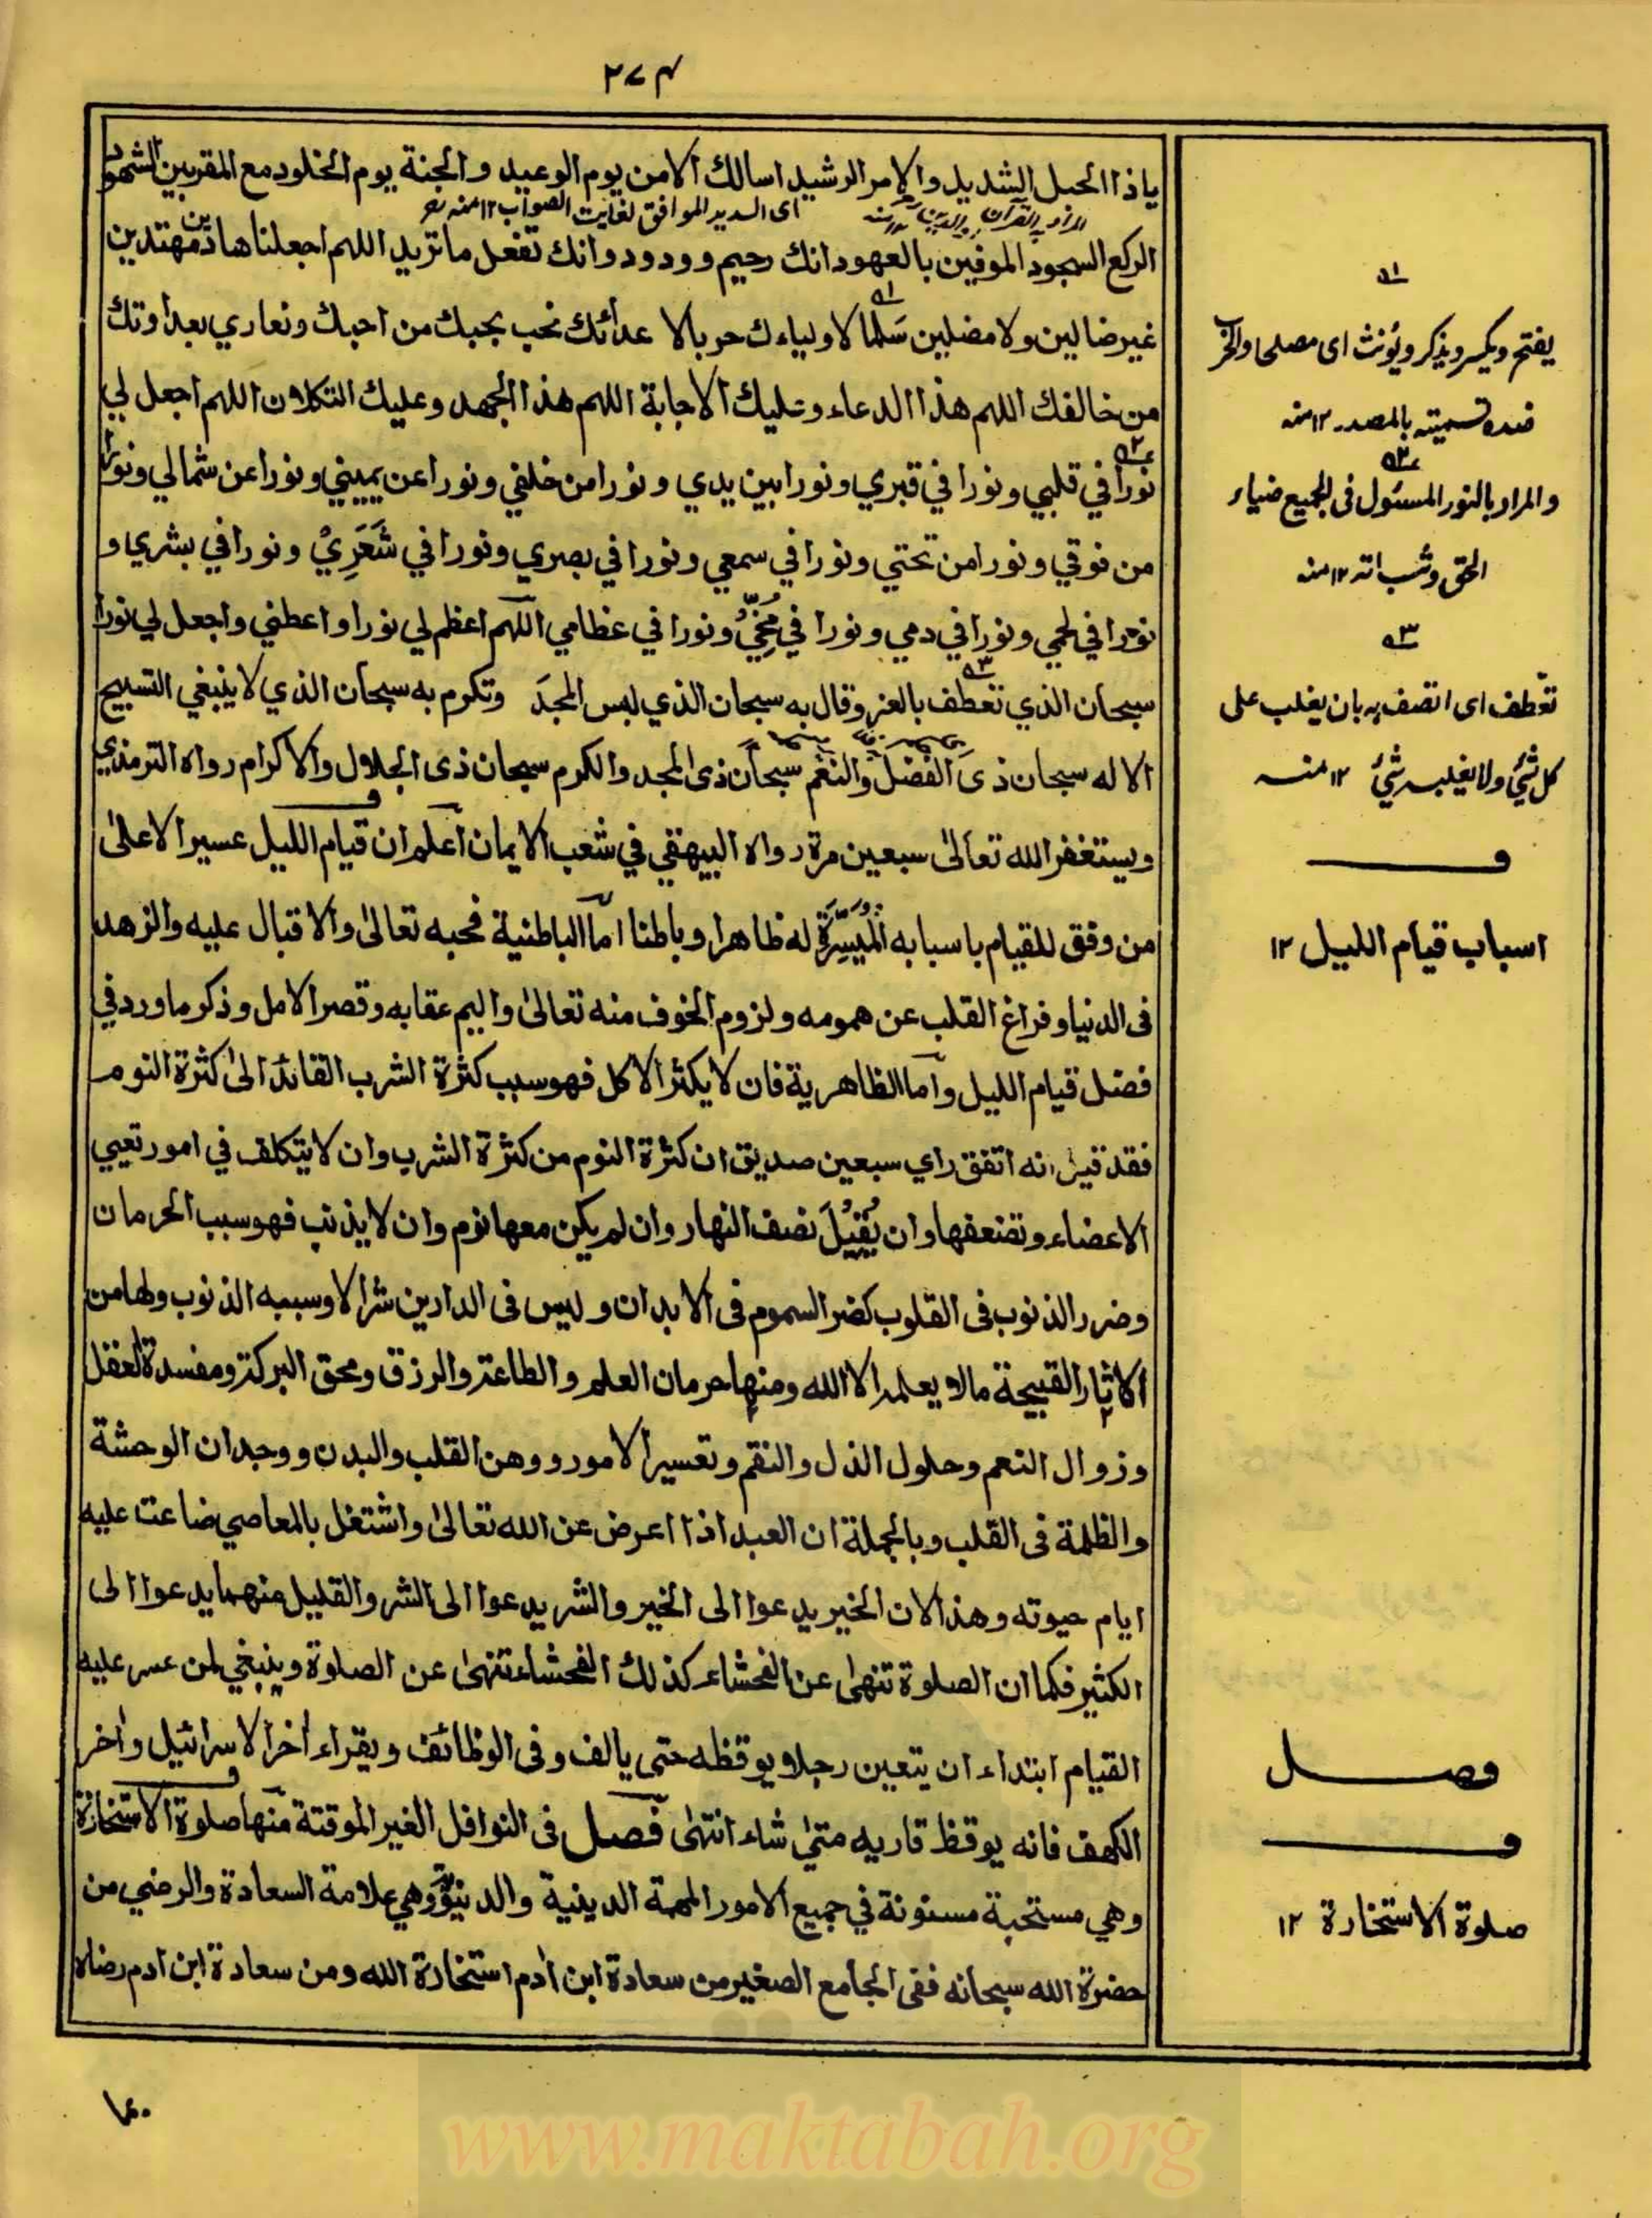 ٢٧٤
ياذا الحبل الشديد والامر الرشيد اسالك الامن يوم الوعيد والجنة يوم الخلود مع المقربين الشهود
المراد به القرآن او الدين ١٢ منه
اى السديد الموافق لغايت الصواب ١٢ منه
الركع السجود الموفين بالعهود انك رحيم و ودود وانك تفعل ما تريد اللهم اجعلنا هادين مهتدين
غير ضالين ولا مضلين سَلما لاولياءك حربا لا عدائك نحب بحبك من احبك ونعاري بعداوتك
من خالفك اللهم هذا الدعاء وعليك الاجابة اللهم هذا الجهد وعليك التكلان اللهم اجعل لي
نورا في قلبي ونورا في قبري ونورا بين يدي ونورا من خلفي ونورا عن يميني ونورا عن شمالي ونورا
من فوقي ونورا من تحتي ونورا في سمعي ونورا في بصري ونورا في شَعَرِيْ ونورا في بشري و
نورا في لحمي ونورا في دمي ونورا في مُخِّيْ ونورا في عظامي اللهم اعظم لي نورا واعطني واجعل لي نورا
سبحان الذي تعطف بالعز وقال به سبحان الذي لبس المجدَ وتكرم به سبحان الذي لا ينبغي التسبيح
الا له سبحان ذى الفضل والنعم سبحان ذى المجد والكرم سبحان ذى الجلال والاكرام رواه الترمذي
ويستغفر الله تعالىٰ سبعين مرة رواه البيهقي في شعب الايمان اعلم ان قيام الليل عسير الا علىٰ
من وفق للقيام باسبابه المُيَسِّرَةِ له ظاهرا وباطنا امّا الباطنية فحبه تعالىٰ والاقبال عليه والزهد
فى الدنيا وفراغ القلب عن همومه ولزوم الخوف منه تعالىٰ واليم عقابه وقصر الامل وذكر ما ورد في
فضل قيام الليل وآما الظاهرية فان لا يكثر الاكل فهو سبب كثرة الشرب القائد الىٰ كثرة النوم
فقد قيل انه اتفق راي سبعين صديق ان كثرة النوم من كثرة الشرب وان لا يتكلف في امور تعيي
الاعضاء وتضعفها وان يُقِيْلَ نصف النهار وان لم يكن معها نوم وان لا يذنب فهو سبب الحرمان
وضرر الذنوب فى القلوب كضر السموم فى الابدان وليس فى الدارين شر الا وسببه الذنوب ولها من
الاثار القبيحة مالا يعلمه الا الله ومنها حرمان العلم والطاعة والرزق ومحق البركة ومفسدة العقل
وزوال النعم وحلول الذل والنقم وتعسير الامور ووهن القلب والبدن ووجدان الوحشة
والظلمة فى القلب وبالجملة ان العبد اذا اعرض عن الله تعالىٰ واشتغل بالمعاصي ضاعت عليه
ايام حيوته وهذا لان الخير يدعوا الى الخير والشر يدعوا الى الشر والقليل منهما يدعوا الى
الكثير فكما ان الصلوة تنهىٰ عن الفحشاء كذلك الفحشاء تنهىٰ عن الصلوة وينبغي لمن عسر عليه
القيام ابتداء ان يتعين رجلا يوقظه حتى يالف وفى الوظائف ويقراء اٰخر الاسرائيل واٰخر
الكهف فانه يوقظ قاريه متىٰ شاء انتهىٰ فصل فى النوافل الغير الموقتة منها صلوة الاستخارة
وهي مستحبة مسنونة في جميع الامور المهمة الدينية والدنيوية وهي علامة السعادة والرضي من
حضرة الله سبحانه ففى الجامع الصغير من سعادة ابن اٰدم استخارة الله ومن سعادة ابن ادم رضاه
١
يفتح ويكسر ويذكر ويؤنث اى مصلحا والحرب
ضده تسميته بالمصدر ١٢ منه
٢
والمراد بالنور المسئول فى الجميع ضياء
الحق وثباته ١٢ منه
٣
تعطف اى اتصف به بان يغلب على
كل شئ ولا يغلبه شئ ١٢ منه
ف
اسباب قيام الليل ١٢
فصل
ف
صلوة الاستخارة ١٢
www.maktabah.org